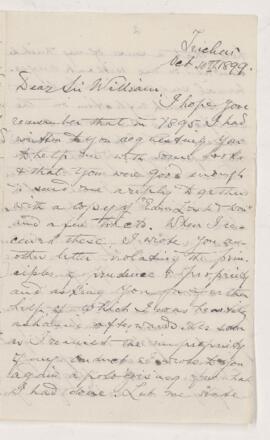 Tucheu
Oct 20th 1899.
Dear Sir William.
I hope you
remember that in 1895 I had
written to you requesting you
to help me with some books
& that you were good enough
to send me a reply together
with a copy of
and a few tracts. When I re-
ceived these, I wrote you an-
other letter violating the prin-
ciples of prudence & propriety
and asking you for further
help of which I was heartily
ashamed afterwards. As soon
as I realised the impropriety
of my conduct I wrote to you
again apologising for what
I had done. Let me state